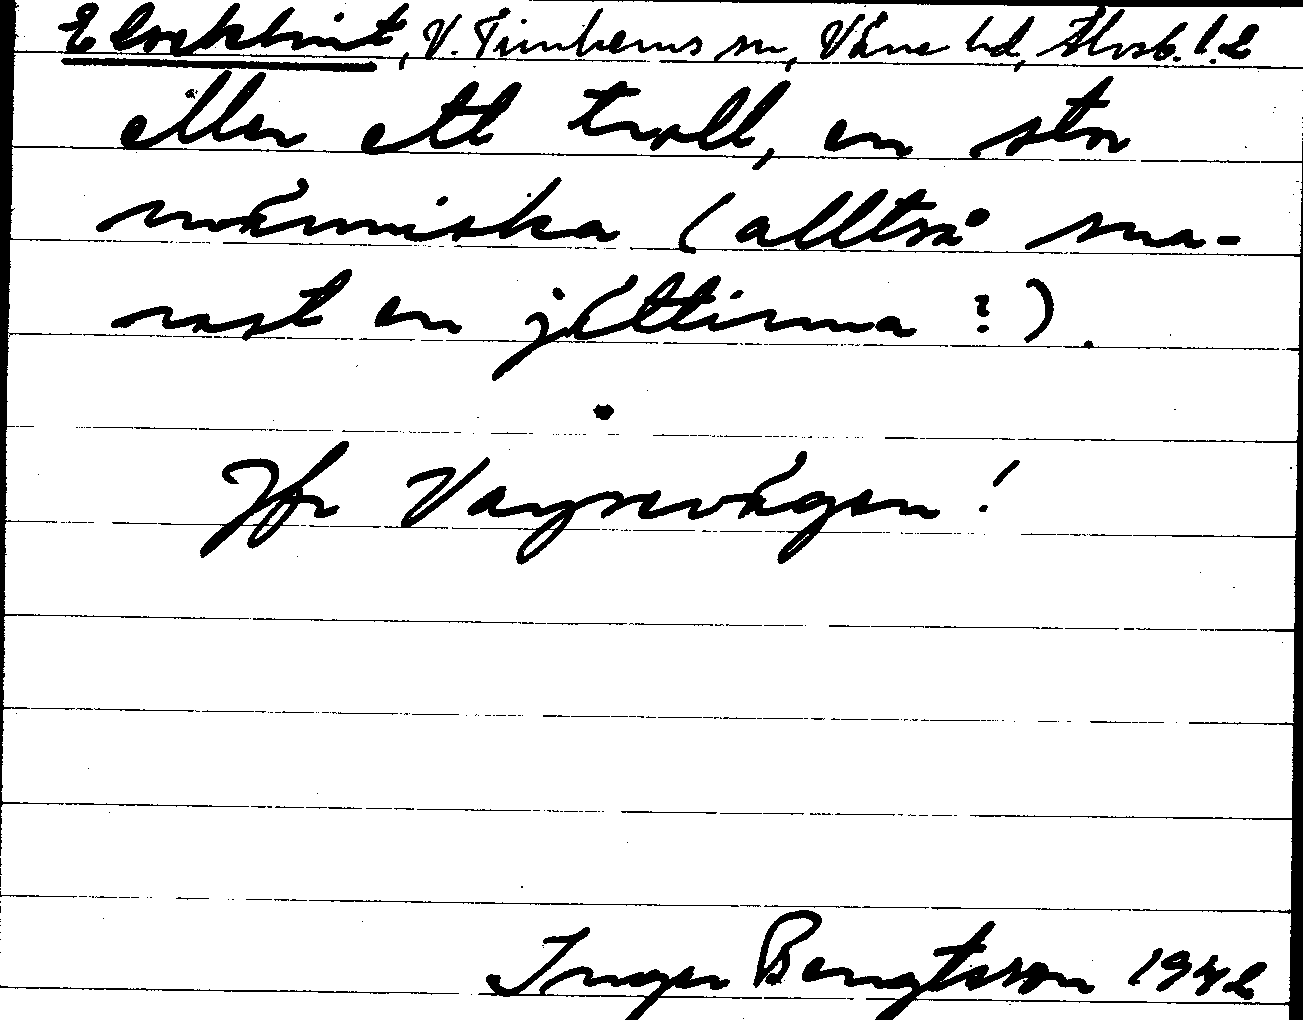 V. Tunhems sn, Väne hd, Älvsb. l. 2
eller ett troll, en stor
människa (alltså sna-
rast en jättinna?).
Jfr Vargnevägen!
Inger Bengtsson 1942